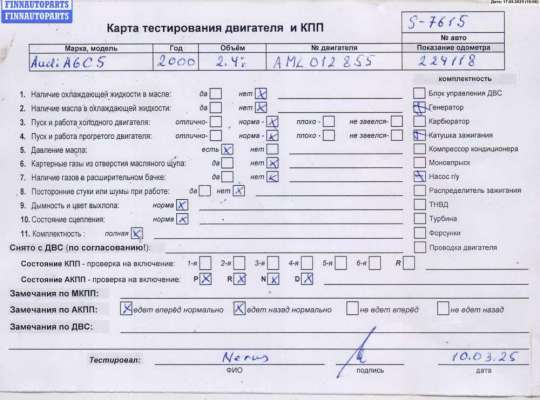 FINNAUTOPARTS
FINNAUTOPARTS
Date: 17.03.2025
Карта тестирования двигателя и КПП
S-7615
№ авто
Марка, модель Год Объём № двигателя Показание одометра
Audi A6C5 2000 2.4i AML012855 224118
комплектность
1. Наличие охлаждающей жидкости в масле: да нет x Блок управления ДВС
2. Наличие масла в охлаждающей жидкости: да нет x Генератор
3. Пуск и работа холодного двигателя: отлично- норма - x плохо - не завелся- Карбюратор
4. Пуск и работа прогретого двигателя: отлично- норма - x плохо - не завелся- Катушка зажигания
5. Давление масла: есть x нет Компрессор кондиционера
6. Картерные газы из отверстия масляного щупа: да нет x Моновпрыск
7. Наличие газов в расширительном бачке: да нет x Насос г/у
8. Посторонние стуки или шумы при работе: да нет x Распределитель зажигания
9. Дымность и цвет выхлопа: норма x ТНВД
10. Состояние сцепления: норма x Турбина
11. Комплектность : полная x Форсунки
Снято с ДВС (по согласованию!): Проводка двигателя
Состояние КПП - проверка на включение: 1-я 2-я 3-я 4-я 5-я 6-я R
Состояние АКПП - проверка на включение: P x R x N x D x
Замечания по МКПП:
Замечания по АКПП: x едет вперёд нормально x едет назад нормально не едет вперёд не едет назад
Замечания по ДВС:
Тестировал: 10.03.25
ФИО подпись дата